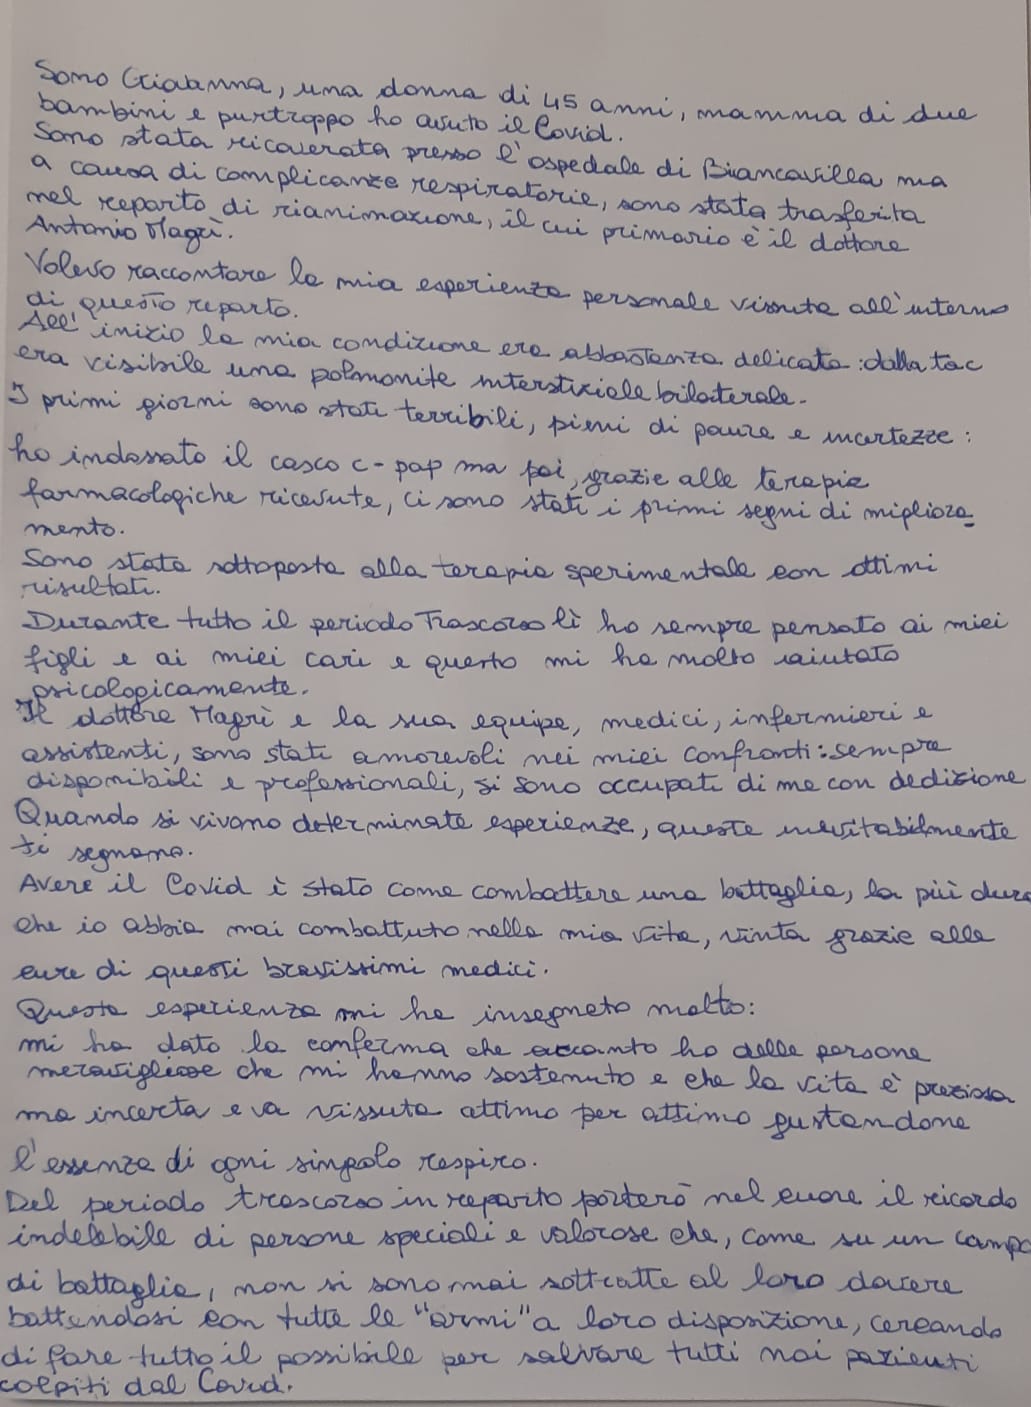 Sono Giovanna, una donna di 45 anni, mamma di due
bambini e purtroppo ho avuto il Covid.
Sono stata ricoverata presso l'ospedale di Biancavilla ma
a causa di complicanze respiratorie, sono stata trasferita
nel reparto di rianimazione, il cui primario è il dottore
Antonio Magrì.
Volevo raccontare la mia esperienza personale vissuta all'interno
di questo reparto.
All'inizio la mia condizione era abbastanza delicata: dalla tac
era visibile una polmonite interstiziale bilaterale.
I primi giorni sono stati terribili, pieni di paure e incertezze:
ho indossato il casco c-pap ma poi, grazie alle terapie
farmacologiche ricevute, ci sono stati i primi segni di migliora
mento.
Sono stata sottoposta alla terapia sperimentale con ottimi
risultati.
Durante tutto il periodo trascorso lì ho sempre pensato ai miei
figli e ai miei cari e questo mi ha molto aiutato
psicologicamente.
Il dottore Magrì e la sua equipe, medici, infermieri e
assistenti, sono stati amorevoli nei miei confronti: sempre
disponibili e professionali, si sono occupati di me con dedizione
Quando si vivono determinate esperienze, queste inevitabilmente
ti segnano.
Avere il Covid è stato come combattere una battaglia, la più dura
che io abbia mai combattuto nella mia vita, vinta grazie alle
cure di questi bravissimi medici.
Questa esperienza mi ha insegnato molto:
mi ha dato la conferma che accanto ho delle persone
meravigliose che mi hanno sostenuto e che la vita è preziosa
ma incerta e va vissuta attimo per attimo gustandone
l'essenza di ogni singolo respiro.
Del periodo trascorso in reparto porterò nel cuore il ricordo
indelebile di persone speciali e valorose che, come su un campo
di battaglia, non si sono mai sottratte al loro dovere
battendosi con tutte le "armi" a loro disposizione, cercando
di fare tutto il possibile per salvare tutti noi pazienti
colpiti dal Covid.